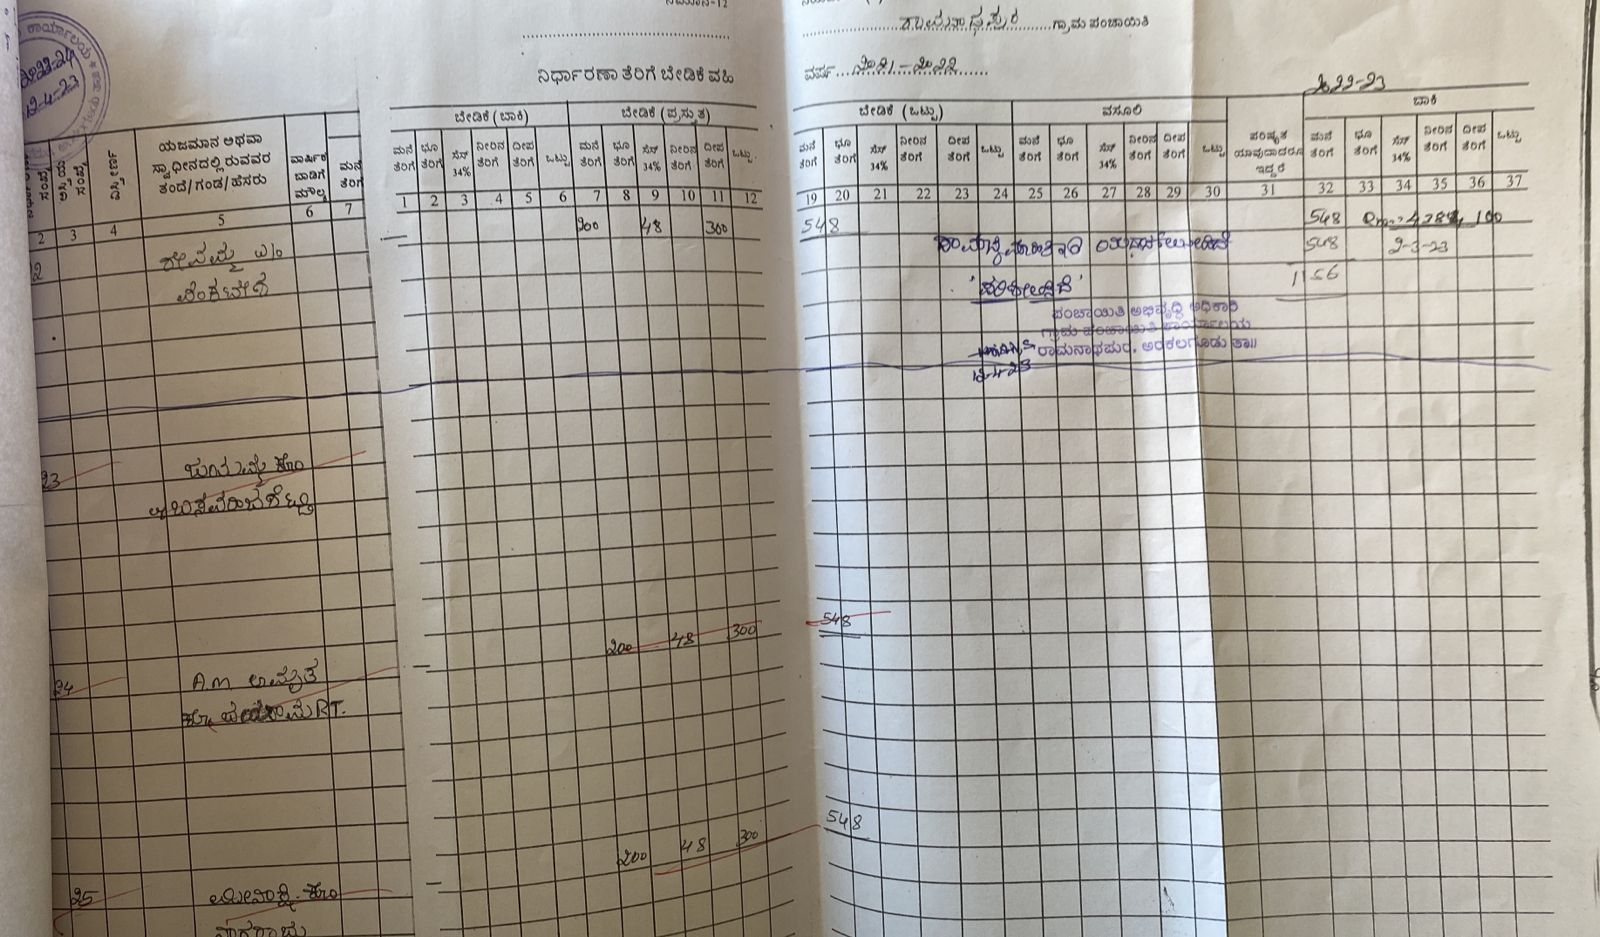 ನಮೂನೆ-12
ರಾಮನಾಥಪುರ ಗ್ರಾಮ ಪಂಚಾಯಿತಿ
ನಿರ್ಧಾರಣಾ ತೆರಿಗೆ ಬೇಡಿಕೆ ವಹಿ
ವರ್ಷ 2021-2022
2022-23
12-4-23
ಬೇಡಿಕೆ (ಬಾಕಿ) ಬೇಡಿಕೆ (ಪ್ರಸ್ತುತ) ಬೇಡಿಕೆ (ಒಟ್ಟು) ವಸೂಲಿ ಬಾಕಿ
ಯಜಮಾನ ಅಥವಾ
ಸ್ವಾಧೀನದಲ್ಲಿ ರುವವರ
ತಂದೆ/ಗಂಡ/ಹೆಸರು
ವಿಸ್ತೀರ್ಣ
ವಾರ್ಷಿಕ
ಬಾಡಿಗೆ
ಮೌಲ್ಯ
ಮನೆ ತೆರಿಗೆ
ಮನೆ ತೆರಿಗೆ ಭೂ ತೆರಿಗೆ ಸೆಸ್ 34% ನೀರಿನ ತೆರಿಗೆ ದೀಪ ತೆರಿಗೆ ಒಟ್ಟು ಮನೆ ತೆರಿಗೆ ಭೂ ತೆರಿಗೆ ಸೆಸ್ 34% ನೀರಿನ ತೆರಿಗೆ ದೀಪ ತೆರಿಗೆ ಒಟ್ಟು
ಮನೆ ತೆರಿಗೆ ಭೂ ತೆರಿಗೆ ಸೆಸ್ 34% ನೀರಿನ ತೆರಿಗೆ ದೀಪ ತೆರಿಗೆ ಒಟ್ಟು ಮನೆ ತೆರಿಗೆ ಭೂ ತೆರಿಗೆ ಸೆಸ್ 34% ನೀರಿನ ತೆರಿಗೆ ದೀಪ ತೆರಿಗೆ ಒಟ್ಟು ಪರಿಷ್ಕೃತ ಯಾವುದಾದರೂ ಇದ್ದರೆ ಮನೆ ತೆರಿಗೆ ಭೂ ತೆರಿಗೆ ಸೆಸ್ 34% ನೀರಿನ ತೆರಿಗೆ ದೀಪ ತೆರಿಗೆ ಒಟ್ಟು
2 3 4 5 6 7 1 2 3 4 5 6 7 8 9 10 11 12 19 20 21 22 23 24 25 26 27 28 29 30 31 32 33 34 35 36 37
200 48 300 548 548 100
548 2-3-23
1156
ವೆಂಕಟೇಶ
ಪಂಚಾಯಿತಿ ಅಭಿವೃದ್ಧಿ ಅಧಿಕಾರಿ
ಗ್ರಾಮ ಪಂಚಾಯಿತಿ ಕಾರ್ಯಾಲಯ
ರಾಮನಾಥಪುರ, ಅರಕಲಗೂಡು ತಾ||
12-4-23
23
200 48 300 548
24 A.M. ಅಮೃತ
RT.
200 48 300 548
25 ಮೀನಾಕ್ಷಿ ಕೋಂ
ನಾಗರಾಜು